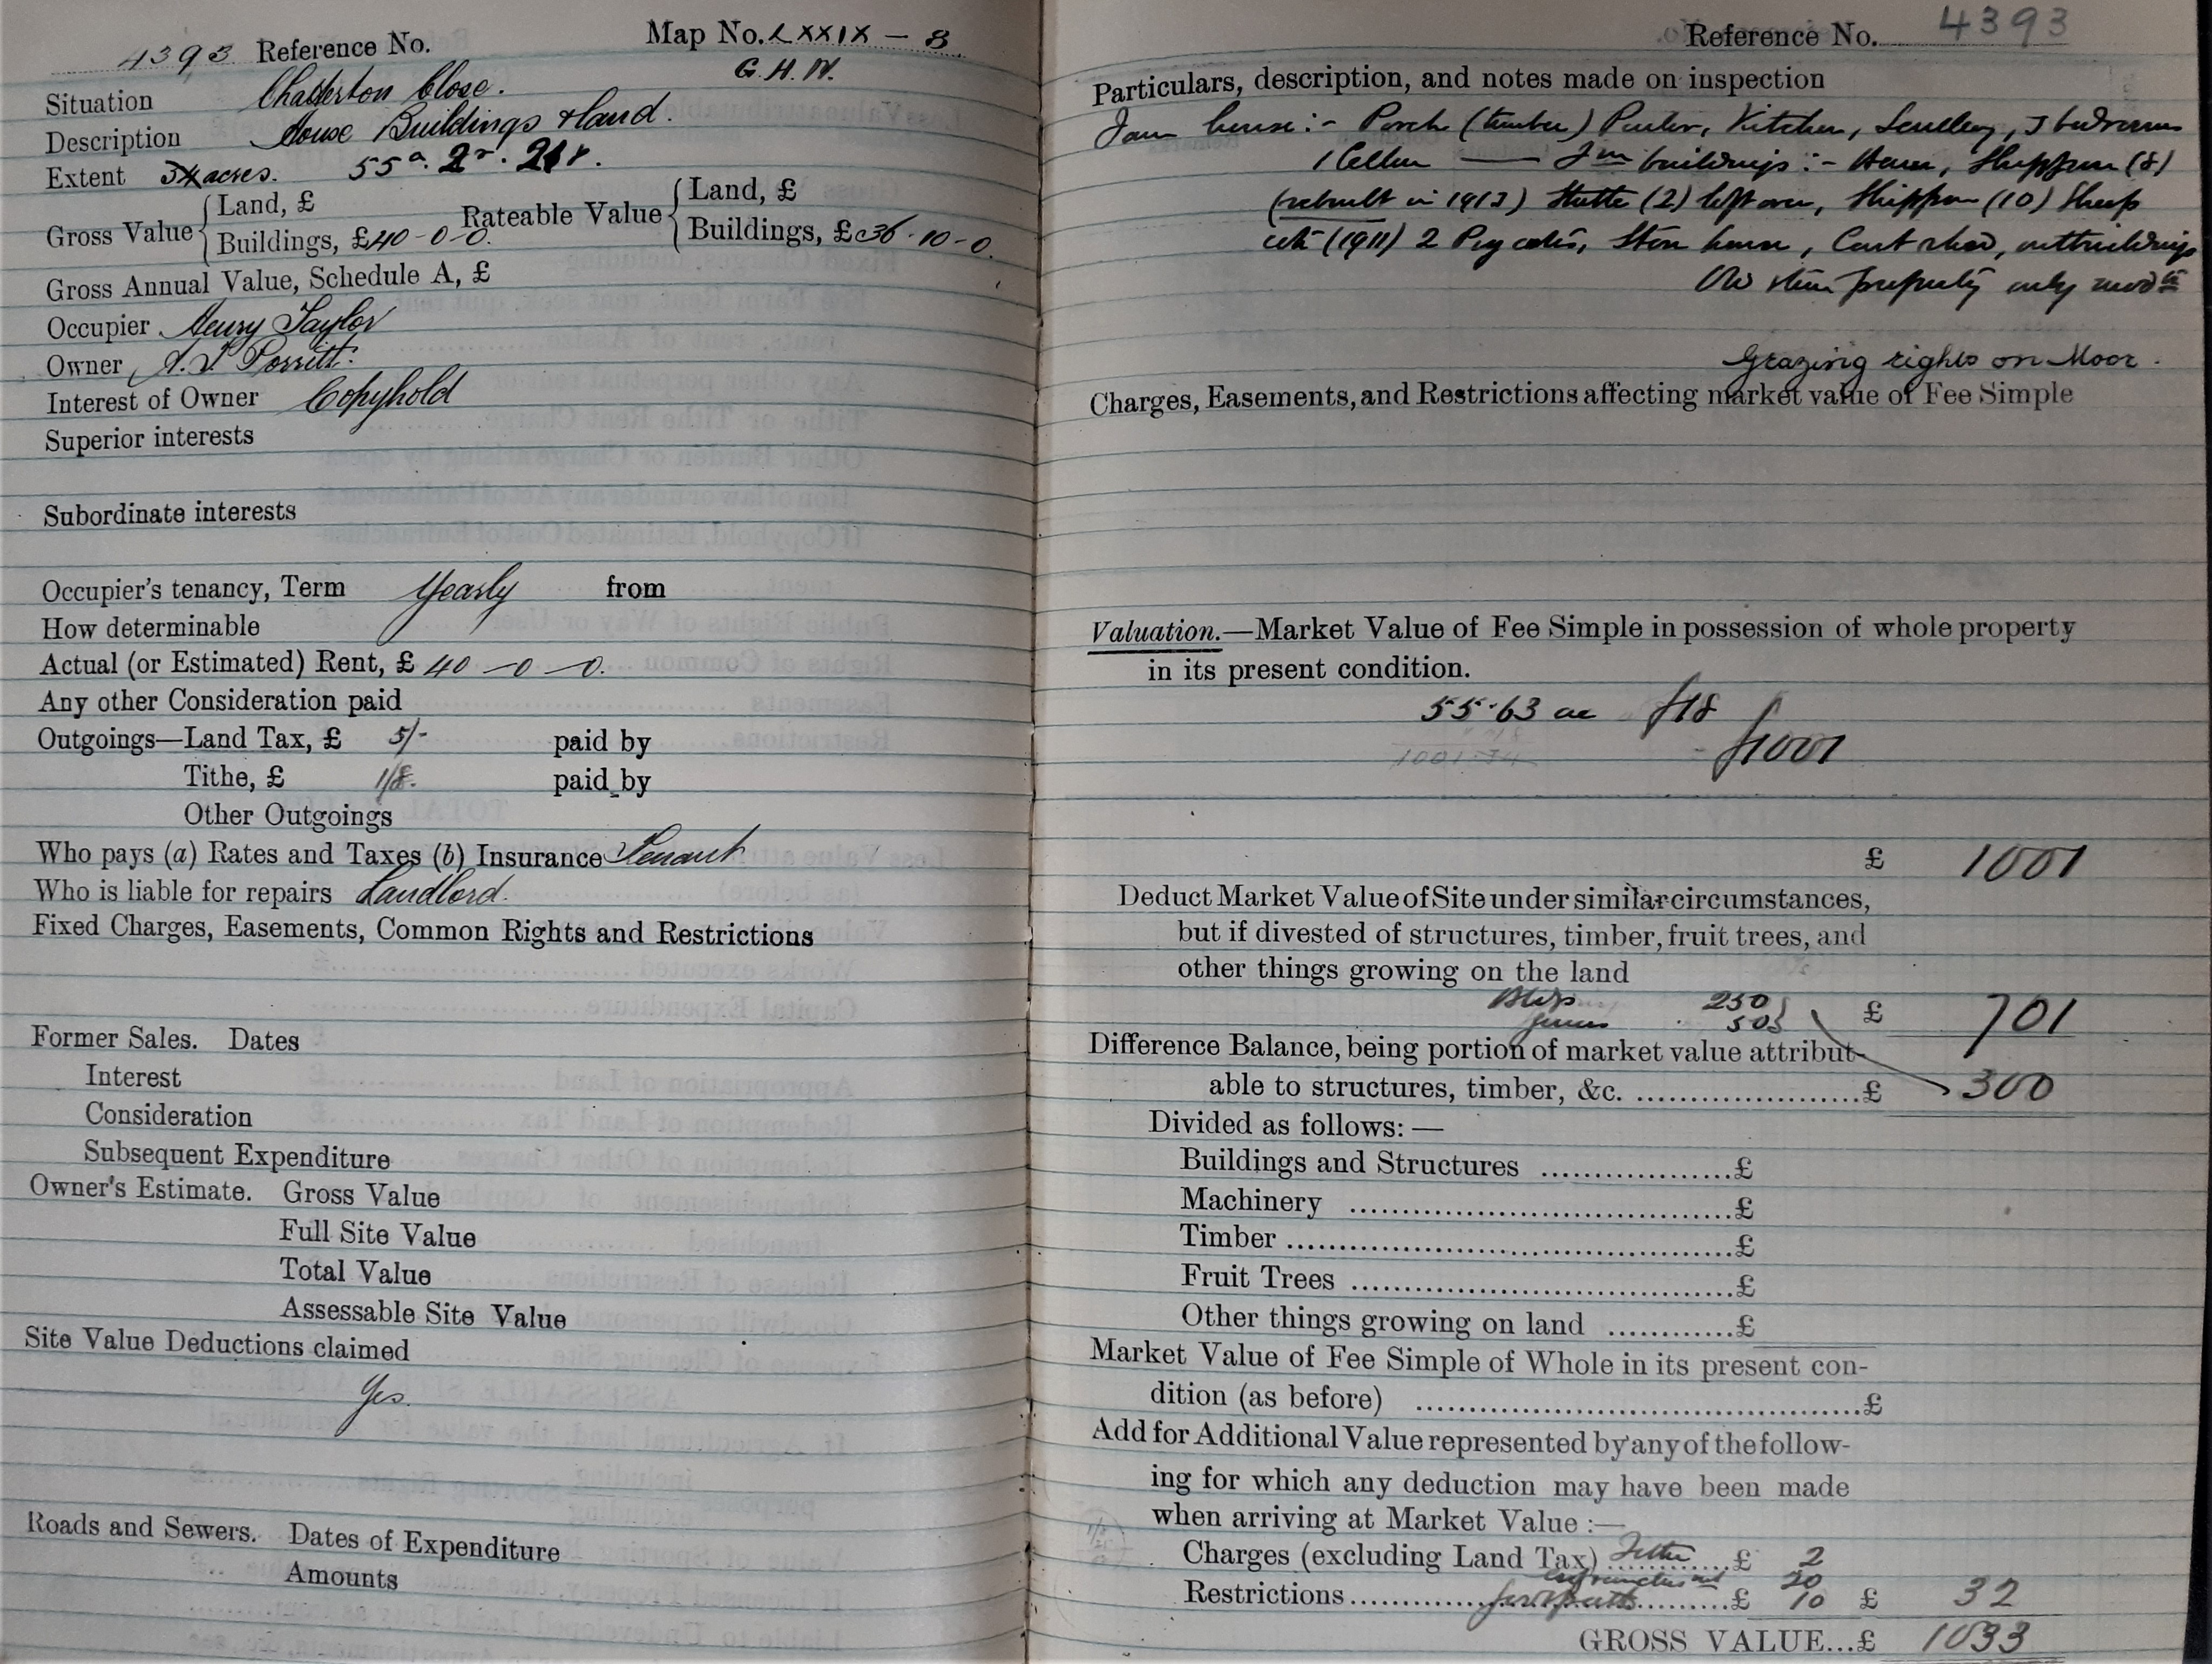 4393 Reference No. Map No. LXXIX - 8
G. H. W.
Situation Chatterton Close.
Description House Buildings & Land.
Extent acres. 55a. 2r. 21p.
Gross Value { Land, £ Rateable Value { Land, £
Buildings, £40-0-0. Buildings, £36-10-0.
Gross Annual Value, Schedule A, £
Occupier Henry Taylor
Owner Porritt.
Interest of Owner Copyhold
Superior interests
Subordinate interests
Occupier's tenancy, Term Yearly from
How determinable
Actual (or Estimated) Rent, £ 40-0-0.
Any other Consideration paid
Outgoings—Land Tax, £ 5/- paid by
Tithe, £ 1/8. paid by
Other Outgoings
Who pays (a) Rates and Taxes (b) Insurance Tenant
Who is liable for repairs Landlord.
Fixed Charges, Easements, Common Rights and Restrictions
Former Sales. Dates
Interest
Consideration
Subsequent Expenditure
Owner's Estimate. Gross Value
Full Site Value
Total Value
Assessable Site Value
Site Value Deductions claimed
Yes.
Roads and Sewers. Dates of Expenditure
Amounts
Reference No. 4393
Particulars, description, and notes made on inspection
Farm house:- Porch (timber) Parlor, Kitchen, Scullery, 3 bedrooms
1 Cellar — Fm buildings:- House, Shippon (8)
(rebuilt in 1913) Stable (2) loft over, Shippon (10) Sheep
cote (1911) 2 Pig cotes, Store house, Cart shed, outbuildings
Old stone property only modte
Grazing rights on Moor.
Charges, Easements, and Restrictions affecting market value of Fee Simple
Valuation.—Market Value of Fee Simple in possession of whole property
in its present condition.
55.63 ac £18
1001.34 £1001
£ 1001
Deduct Market Value of Site under similar circumstances,
but if divested of structures, timber, fruit trees, and
other things growing on the land
Bldgs 250 }
50 } £ 701
Difference Balance, being portion of market value attribut-
able to structures, timber, &c. ....................£ 300
Divided as follows: —
Buildings and Structures ................£
Machinery ................£
Timber ................£
Fruit Trees ................£
Other things growing on land ............£
Market Value of Fee Simple of Whole in its present con-
dition (as before) ................£
Add for Additional Value represented by any of the follow-
ing for which any deduction may have been made
when arriving at Market Value :—
Charges (excluding Land Tax) Tithe £ 2
enfranchisement 20
Restrictions footpath £ 10 £ 32
GROSS VALUE...£ 1033